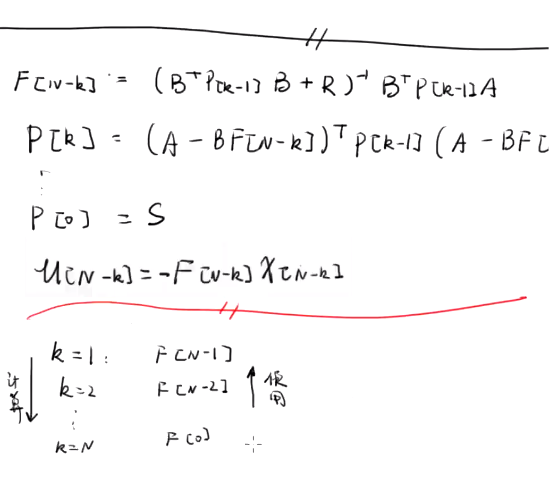 F[N-k] = (BᵀP[k-1] B + R)⁻¹ BᵀP[k-1]A
P[k] = (A - BF[N-k])ᵀ P[k-1] (A - BF[
P[0] = S
u[N-k] = -F[N-k] X[N-k]
k=1: F[N-1]
计算 k=2 F[N-2] 使用
k=N F[0]